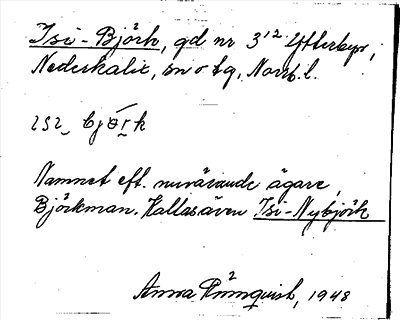 Isi-Björk, gd nr 3¹² Ytterbyn,
Nederkalix, sn o tg, Norrb. l.
ısı_ björk
Namnet eft. nuvarande ägare,
Björkman. Kallas även Isi-Nybjörk
Anna Rönnquist, 1948